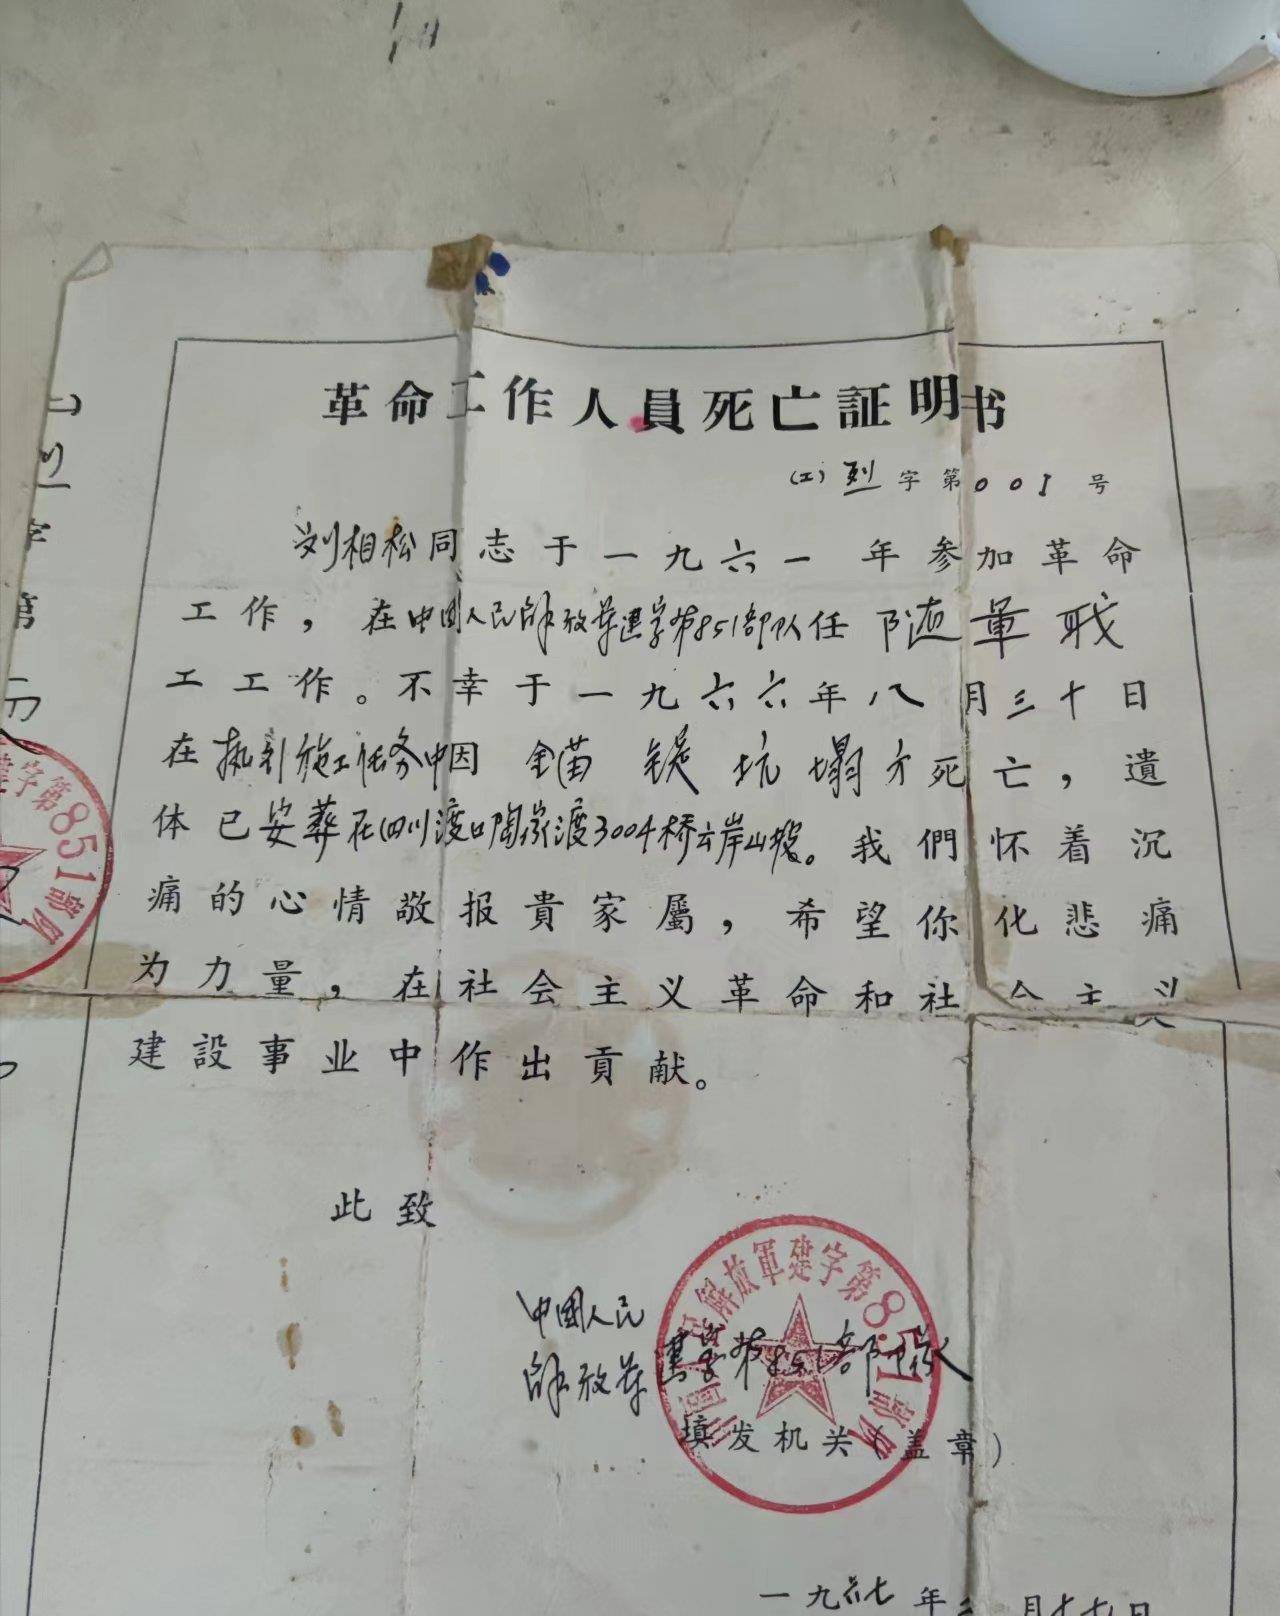 革命工作人員死亡証明书
(工)烈字第001号
刘相松同志于一九六一年参加革命
工作，在中国人民解放军建字第851部队任随軍職
工工作。不幸于一九六六年八月三十日
在执行施工任务中因 坑塌方死亡，遺
体已安葬在四川渡口陶家渡3004桥 岸山坡。我們怀着沉
痛的心情敬报貴家屬，希望你化悲痛
为力量，在社会主义革命和社会主义
建設事业中作出貢献。
此致
中國人民
解放军建字第851部队
填发机关(盖章)
解放軍建字第851部队
一九六七年 月十七日
字第
建字第851部队